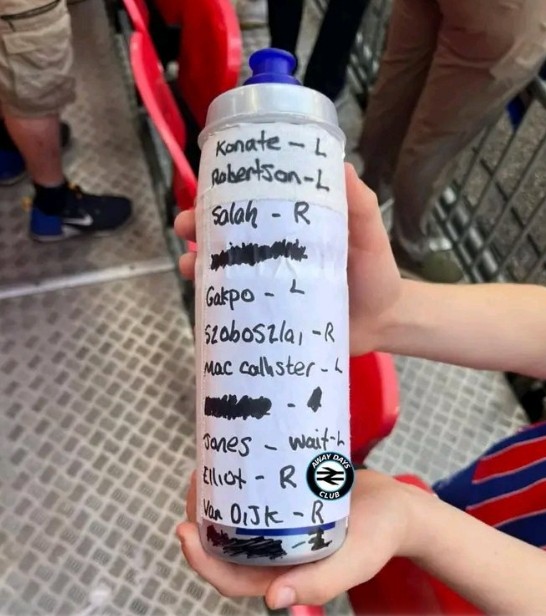 Konate - L
Robertson - L
Salah - R
Gakpo - L
Szoboszlai - R
Mac callister - L
Jones - Wait-L
Elliot - R
Van Dijk - R
AWAY DAYS
CLUB